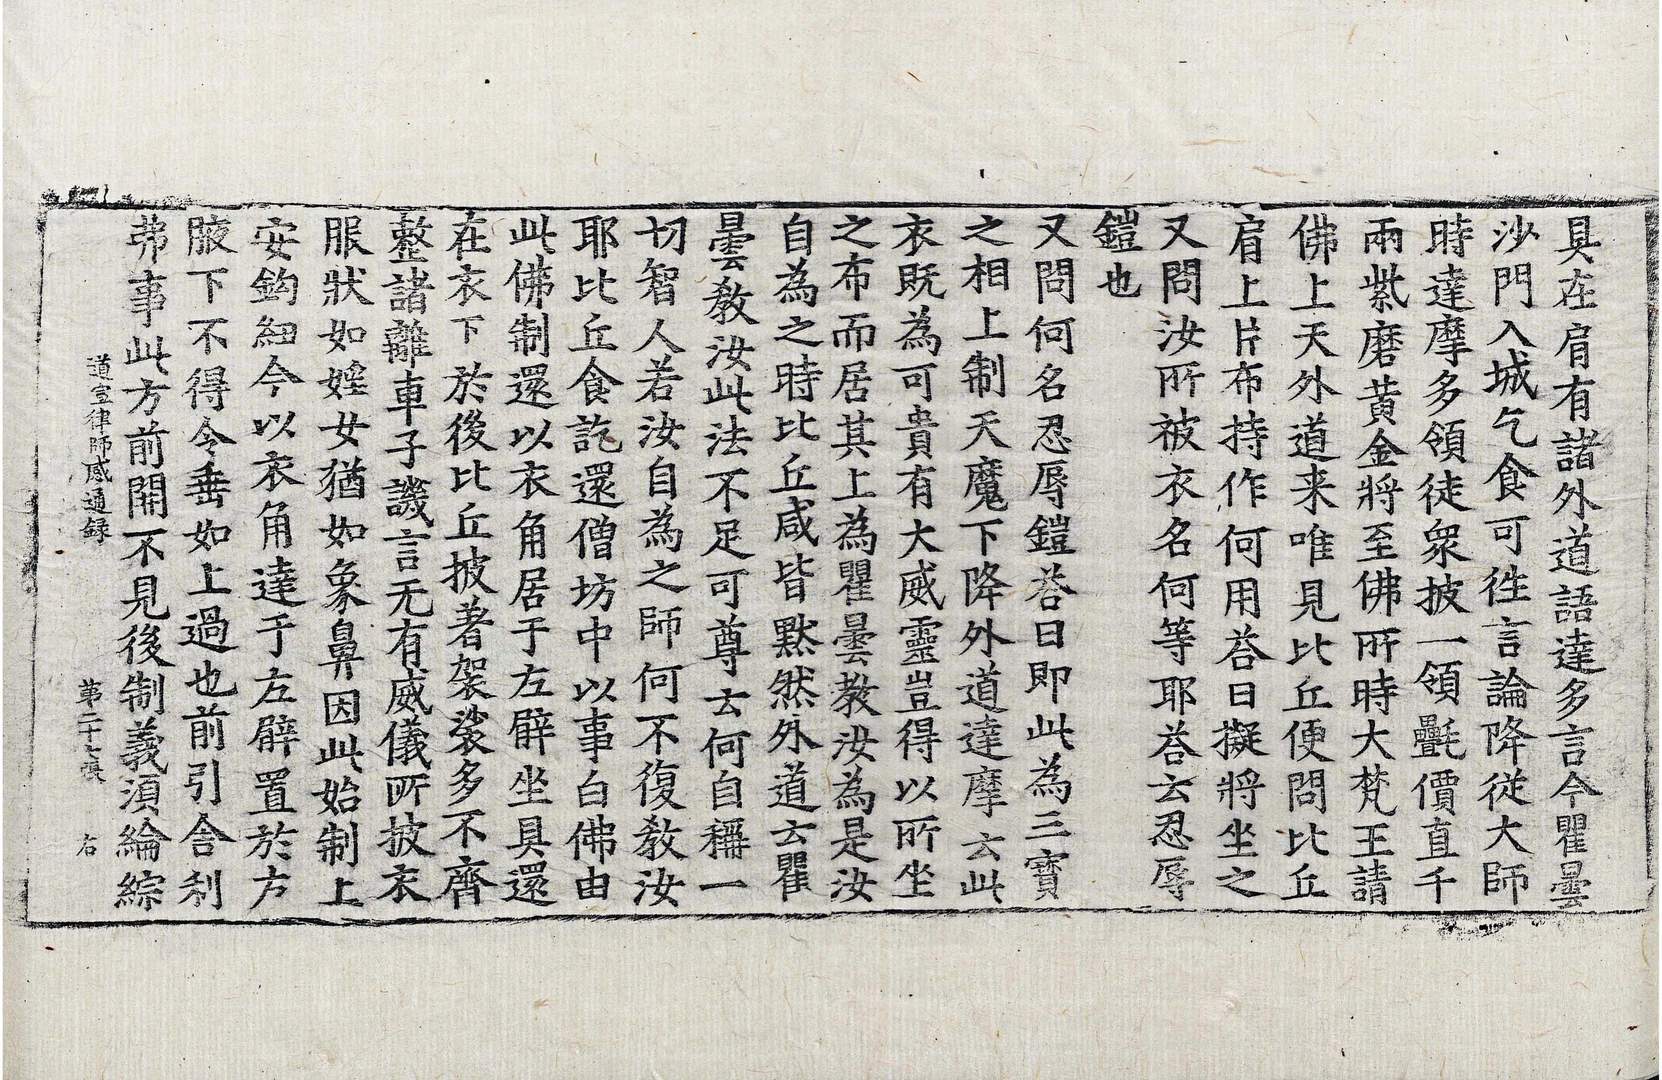 具在肩有諸外道語達多言今瞿曇
沙門入城乞食可徃言論降從大師
時達摩多領徒衆披一領㲲價直千
兩紫磨黃金將至佛所時大梵王請
佛上天外道来唯見比丘便問比丘
肩上片布持作何用荅曰擬將坐之
又問汝所被衣名何等耶荅云忍辱
鎧也
又問何名忍辱鎧荅曰即此為三寳
之相上制天魔下降外道達摩云此
衣既為可貴有大威靈豈得以所坐
之布而居其上為瞿曇教汝為是汝
自為之時比丘咸皆黙然外道云瞿
曇教汝此法不足可尊云何自稱一
切智人若汝自為之師何不復教汝
耶比丘食訖還僧坊中以事白佛由
此佛制還以衣角居于左臂坐具還
在衣下於後比丘披著袈裟多不齊
整諸離車子譏言无有威儀所披衣
服狀如婬女猶如象鼻因此始制上
安鈎紐今以衣角達于左臂置於方
腋下不得令垂如上過也前引舍利
弗事此方前開不見後制義湏綸綜
道宣律師感通録 第二十七張 右